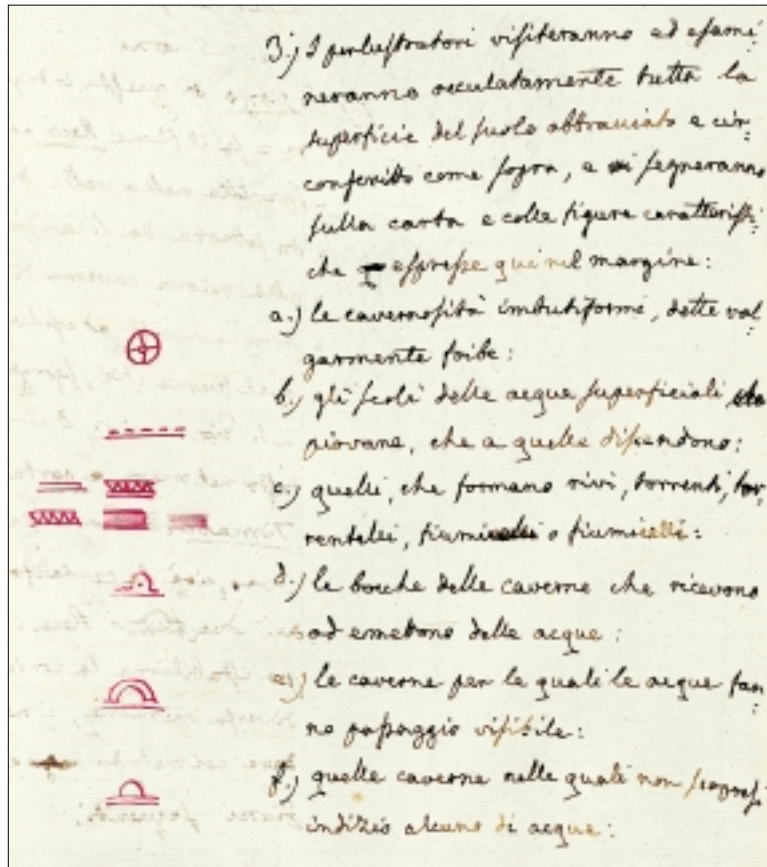 3.) I perlustratori visiteranno ed esami:
neranno oculatamente tutta la
superficie del suolo abbracciato e cir:
conscritto come sopra, e segneranno
sulla carta e colle figure caratteristi:
che espresse qui nel margine:
a.) le cavernosità imbutiformi, dette vol
garmente foibe:
b.) gli scoli delle acque superficiali
piovane, che a quelle discendono:
c.) quelli, che formano rivi, torrenti, tor:
rentelli, o fiumicelli:
d.) le bocche delle caverne che ricevono
od emettono delle acque:
e.) le caverne per le quali le acque fan:
no passaggio visibile:
f.) quelle caverne nelle quali non
indizio alcuno di acque: